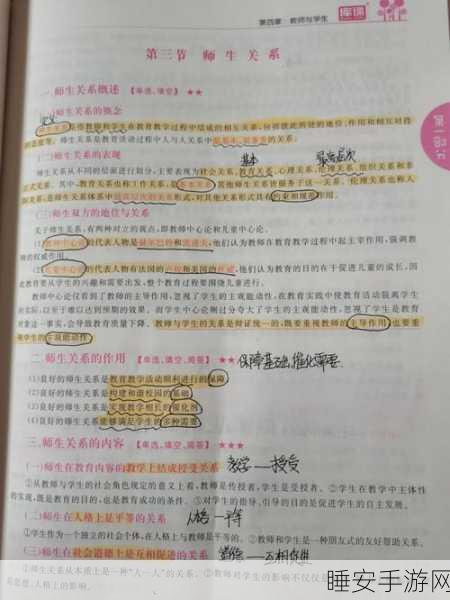 第四章 教师与学生
库课
第三节 师生关系
第一部分
一、师生关系概述 【单选、填空】 ★★
(一)师生关系的概念
师生关系是指教师和学生在教育教学过程中结成的相互关系,包括彼此所处的地位、作用和相互对待
的态度等。师生关系是教育活动过程中人与人关系中最基本、最重要的关系。
(二)师生关系的表现
基本
师生关系从不同的层面进行划分,主要表现为社会关系、教育关系、心理关系、伦理关系、组织关系和非
正式关系。其中,教育关系也称工作关系,是基本关系,其他师生关系皆服务于这一关系。伦理关系也称人
际关系,是师生关系体系中最高层次的关系形式,对其他关系形式具有约束和规范作用。
(三)师生双方的地位与关系
关于师生关系,有两种对立的观点,即教师中心论和儿童中心论。
(1)教师中心论的代表人物是赫尔巴特和凯洛夫,他们认为教师在教育教学过程中起主宰作用,强调教
师的权威作用。
(2)儿童中心论的代表人物有法国的卢梭和美国的杜威,他们认为教育的目的在于促进儿童的成长,因
此教育要从学生的兴趣和需要出发,整个教育过程要围绕儿童进行。
教师中心论仅看到了教师的主导作用,忽视了学生的主观能动性,在教育实践中使教育活动脱离学生
的实际,以至于难以达到预期的效果。而学生中心论则过分夸大了学生的主观能动性,忽视了学生是教育
对象这一事实,会导致教育质量下降。教师与学生的关系是辩证统一的,既要重视教师的主导作用,也要重
视学生的主观能动性。
二、师生关系的作用 【单选、填空、简答】 ★★ 保障基础,催化需要
(1)良好的师生关系是教育教学活动顺利进行的保障
(2)良好的师生关系是构建和谐校园的基础
(3)良好的师生关系是实现教学相长的催化剂
(4)良好的师生关系能够满足学生的多种需要
三、师生关系的内容 【单选、填空、简答】 ★★★
(一)师生在教育内容的教学上结成授受关系 教学—授受
①从教师与学生的社会角色规定的意义上看,教师是传授者,学生是受授者。②学生在教学中主体性
的实现,既是教育的目的,也是教育成功的条件。③对学生的指导、引导的目的是促进学生的自主发展。
(二)师生在人格上是平等的关系 人格—平等
①学生作为一个独立的社会个体,在人格上与教师是平等的。②教师和学生是一种朋友式的友好帮助关系。
(三)师生在社会道德上是互相促进的关系 道德—互相促进
①师生关系从本质上是一种“人—人”的关系。②教师对学生的影响不仅仅
思想、人格上的影响。
睡安手游网